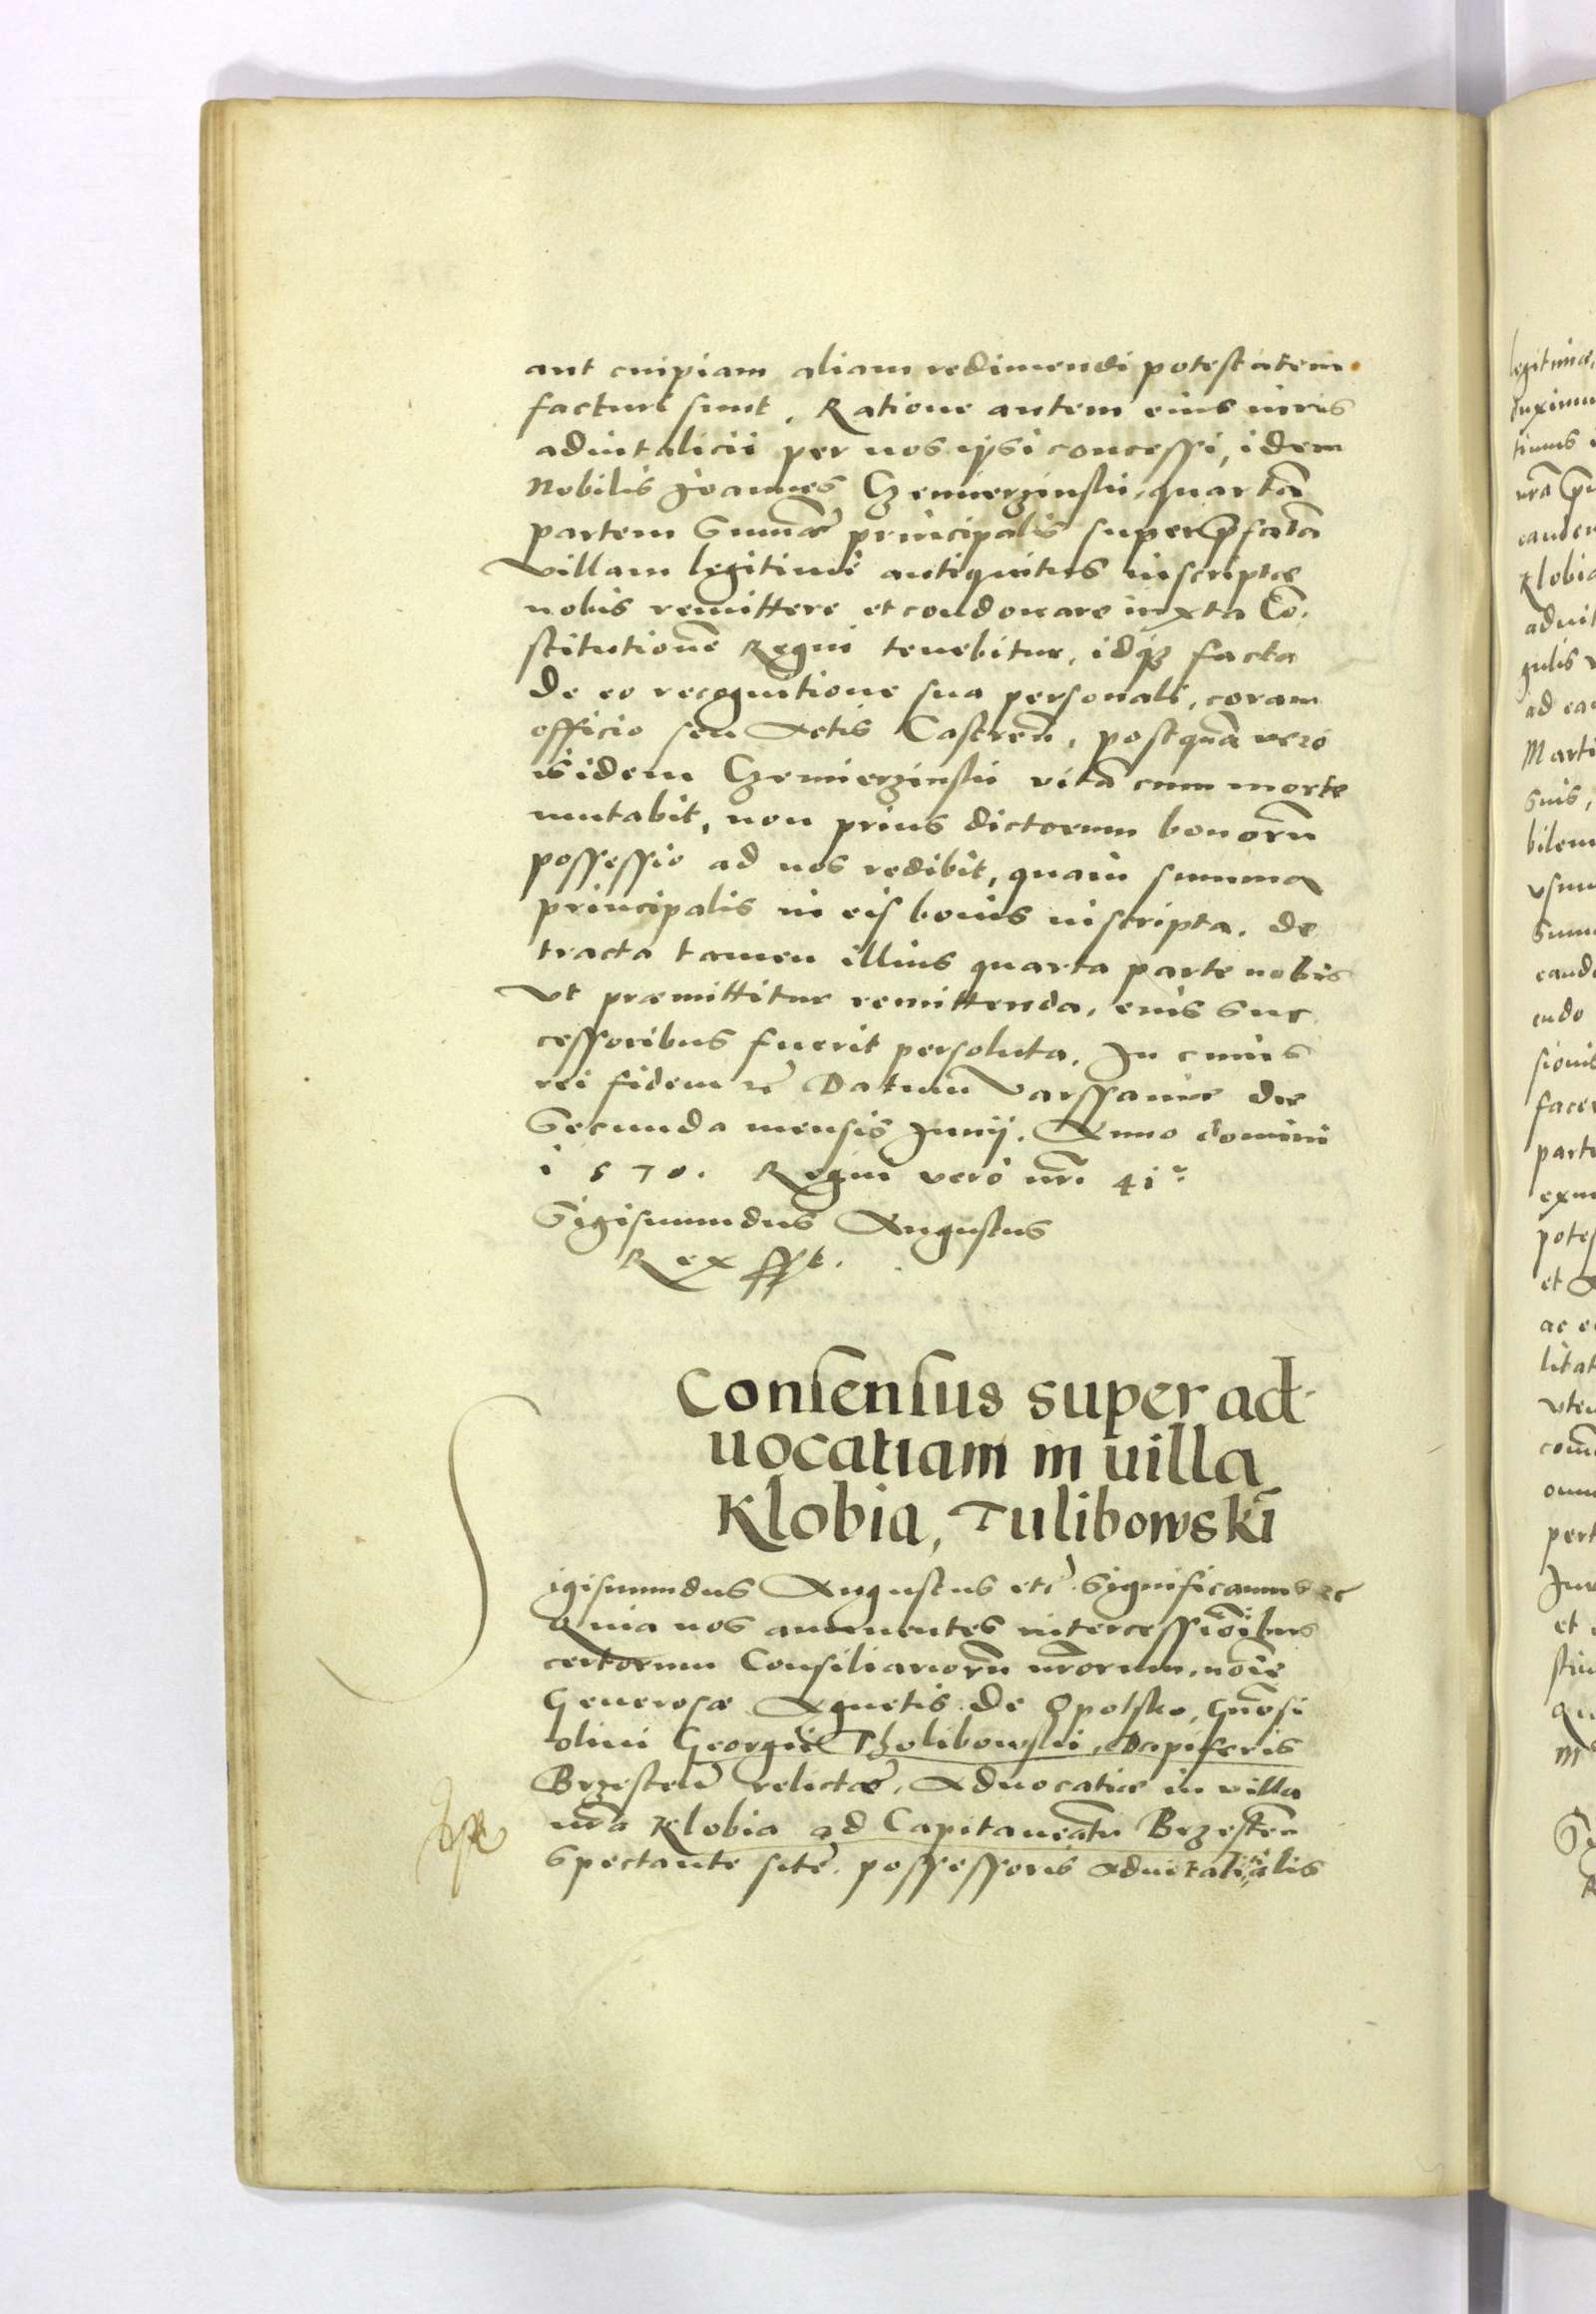 aut cuipiam aliam redimendi potestatem
facturi sunt. Ratione autem eius iuris
aduitalicii per nos ipsi concessi, idem
Nobilis Joannes Czemierzinskii, quartā
partem Sum̄ae principalis super p̄fatā
villam legitime antiquitus inscriptae
nobis remittere et condonare iuxta Cō-
stitutionē Regni tenebitur, idq̄ꝫ facta
de eo recognitione sua personali, coram
officio seu Actis Castreñ, postquā vero
is idem Czemierzinskii vitā cum morte
mutabit, non prius dictorum bonorū
possessio ad nos redibit, quam summa
principalis in eis bonis inscripta, de
tracta tamen illius quarta parte nobis
vt praemittitur remittenda, eius suc
cessoribus fuerit persoluta. In cuius
rei fidem ꝛc̄ Datum Varssauiae die
Secunda mensis Junij. Anno domini
1570. Regni vero nr̄i 41.
Sigismundus Augustus
Rex sspt.
Consensus super ad-
uocatiam in uilla
Klobia, Tulibowski
Sigismundus Augustus etc̄ Significamus ꝛc
Quia nos annuentes intercessiōibus
certorum Consiliariorū nr̄orum, nōie
Generosae Agnetis de Opolsko, Gn̄osi
olim Georgii Tholibowskii, Dapiferis
Brzesteñ relictae, Aduocatiae in villa
nr̄a Klobia ad Capitaneatū Brzesteñ
Spectante sitae, possessoris aduitalitialis
legitimae,
duximu
Klobia
Marti
suis,
bilem
vsum
face
parte
potes
et
ac e
litat
pert
et